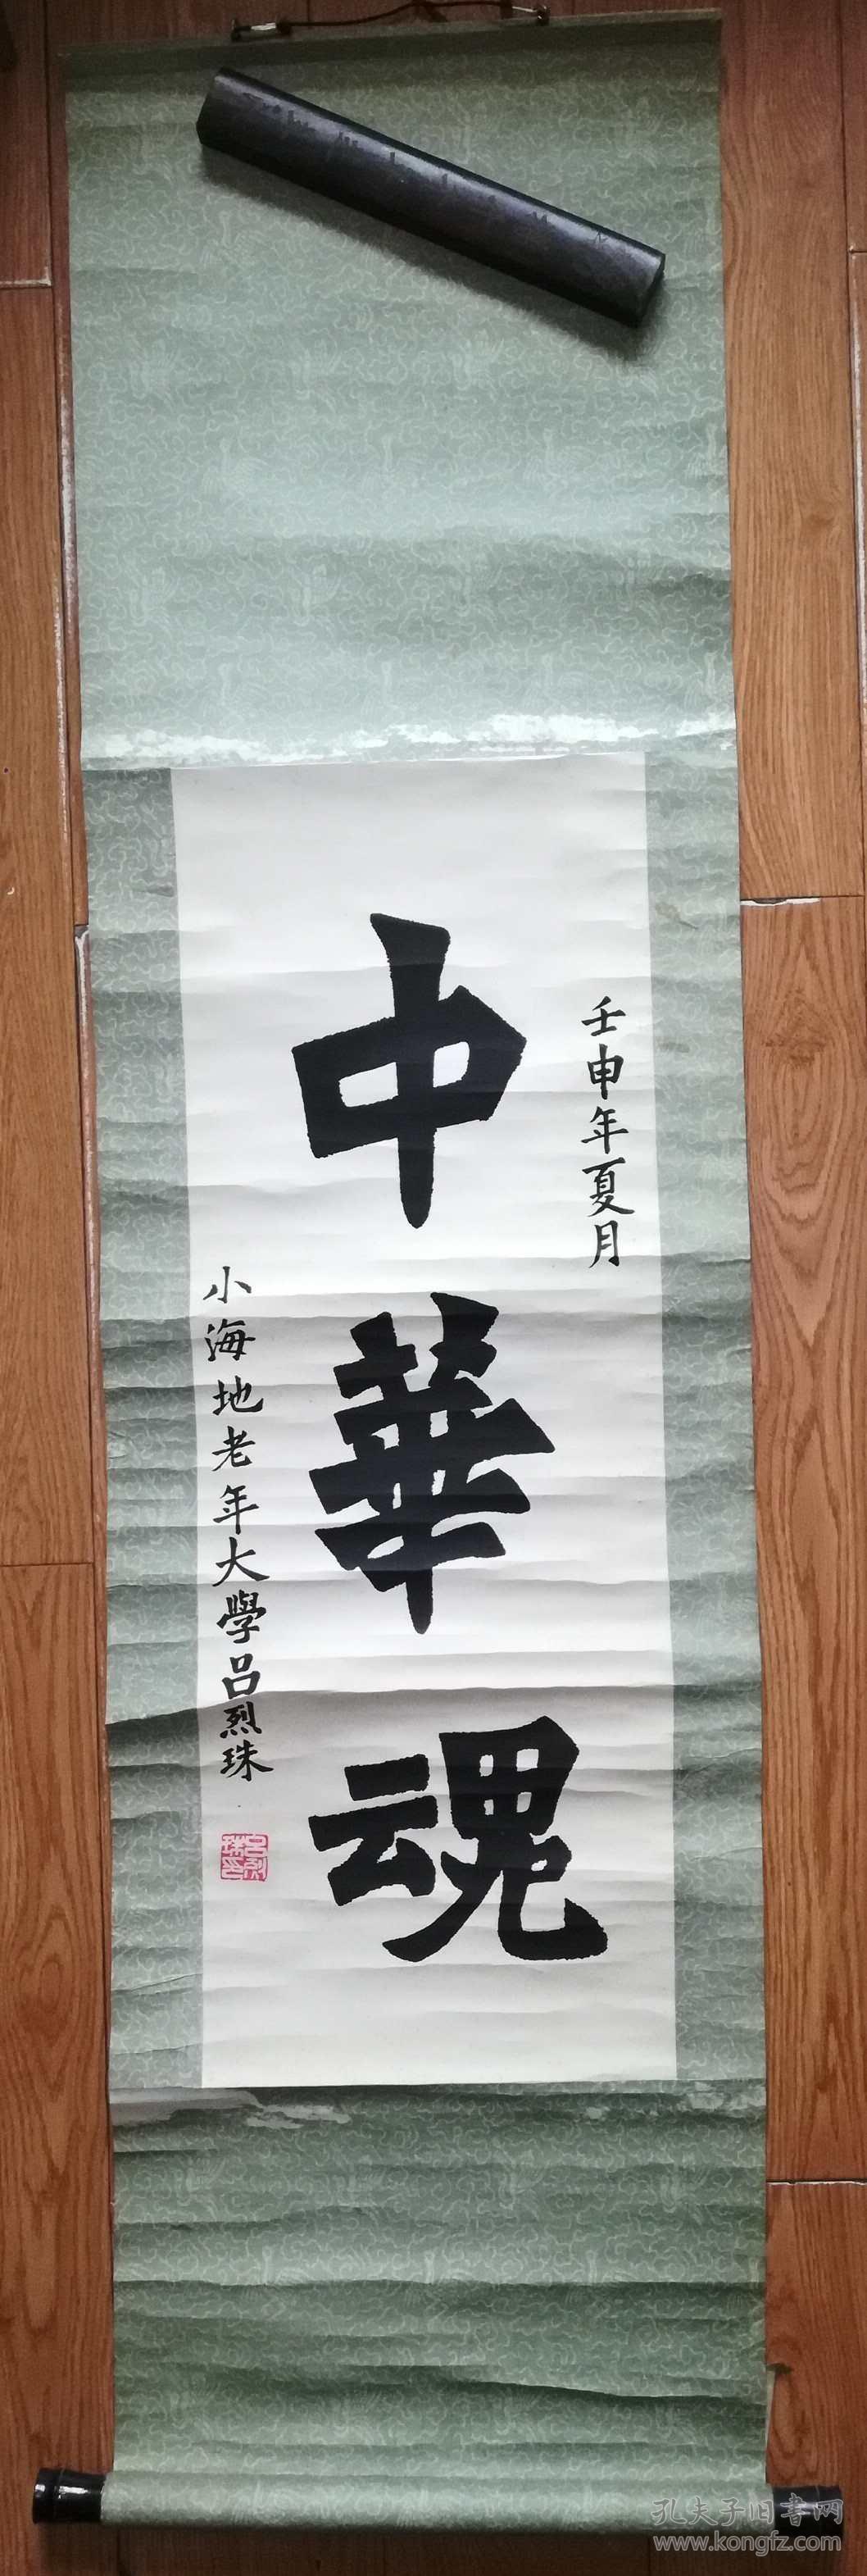 壬申年夏月
中華魂
小海地老年大學呂烈珠
呂烈珠印
孔夫子旧书网
www.kongfz.com